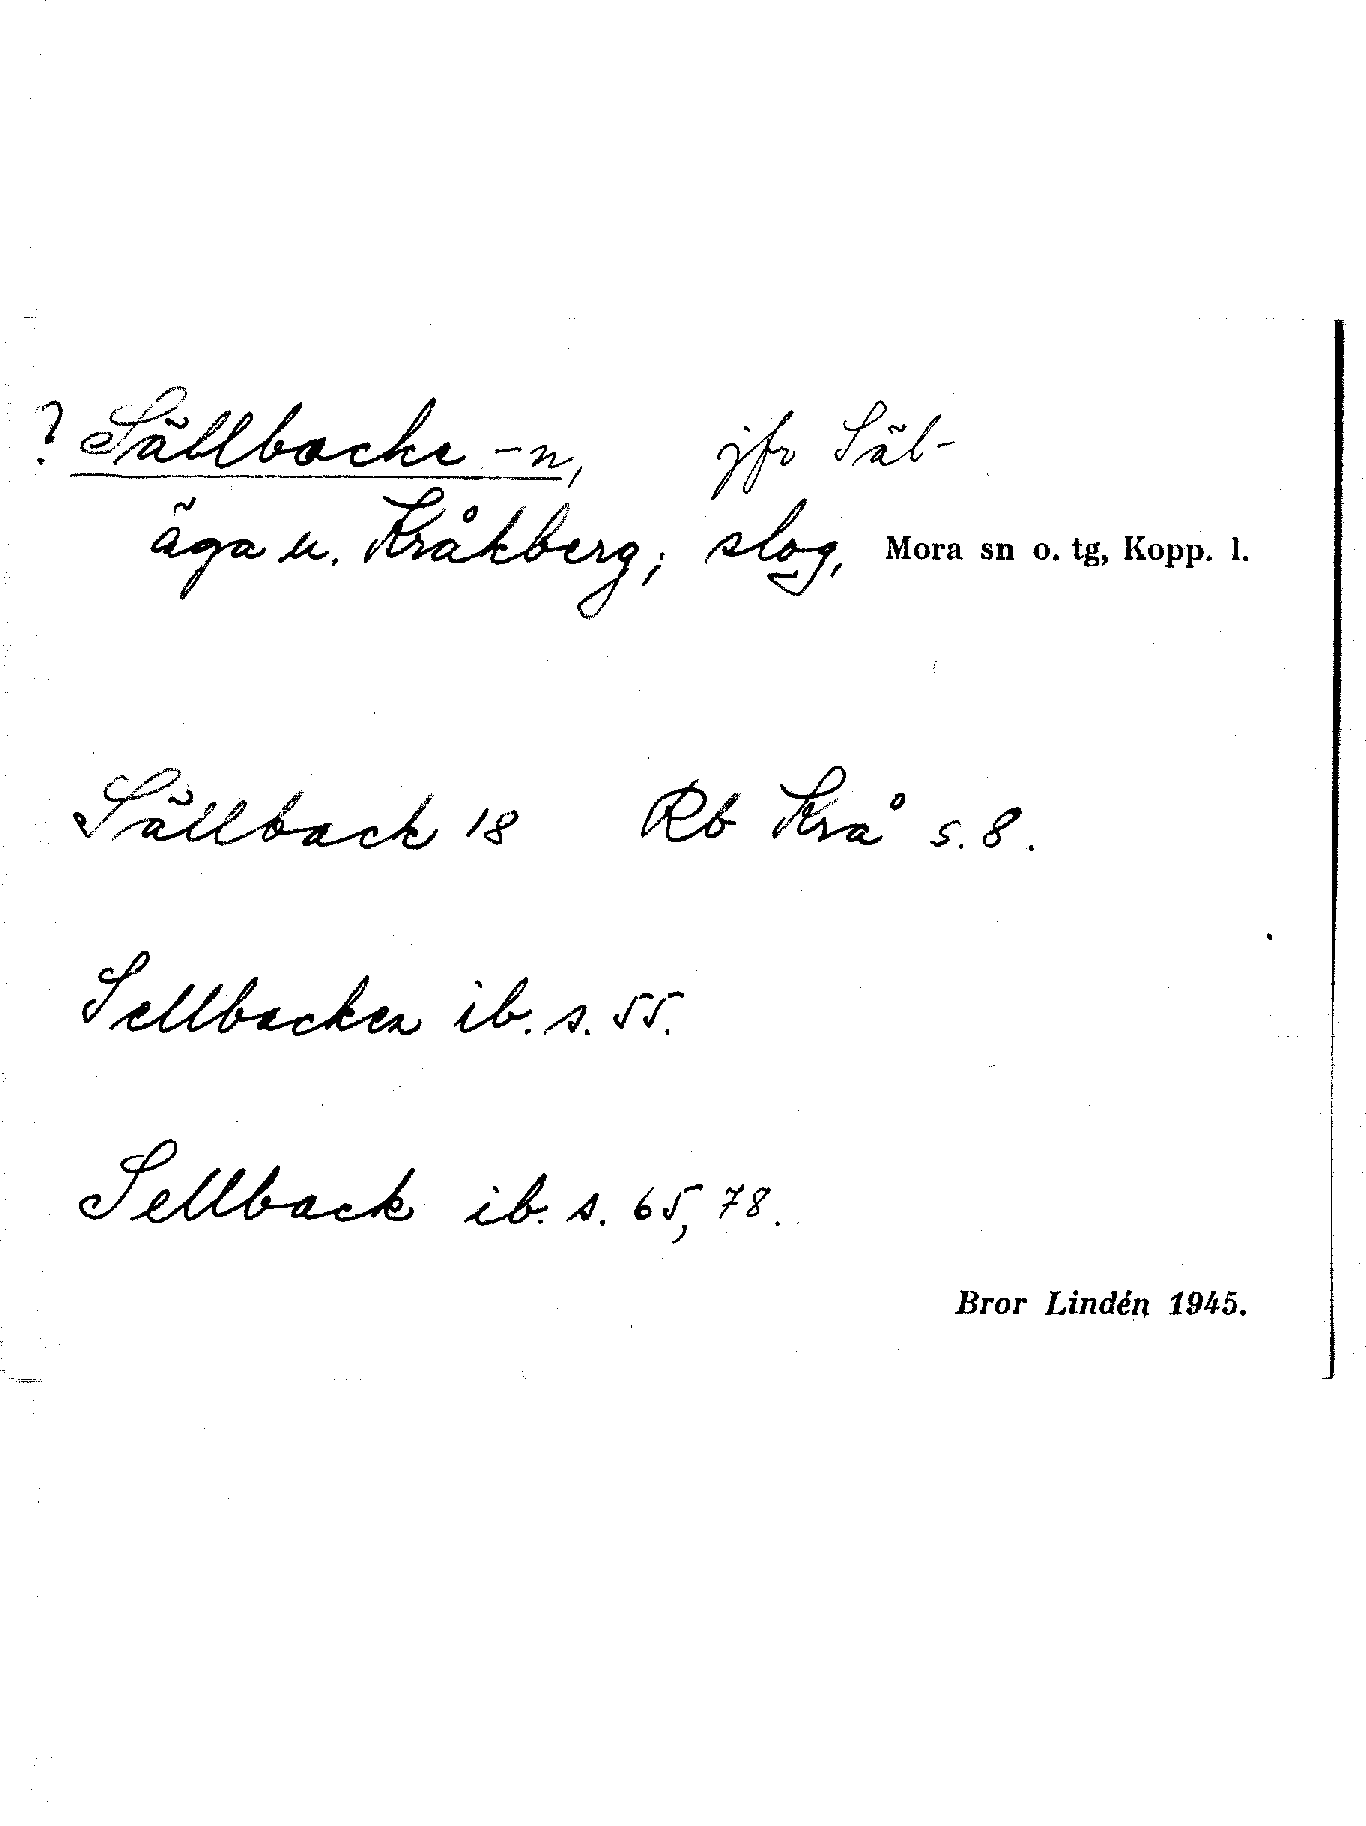 ? Sällbacke -n, jfr Säl-
äga u. Kråkberg; slog, Mora sn o. tg, Kopp. l.
Sällback 18 Rb Krå s. 8.
Sellbacken ib. s. 55.
Sellback ib. s. 65, 78.
Bror Lindén 1945.